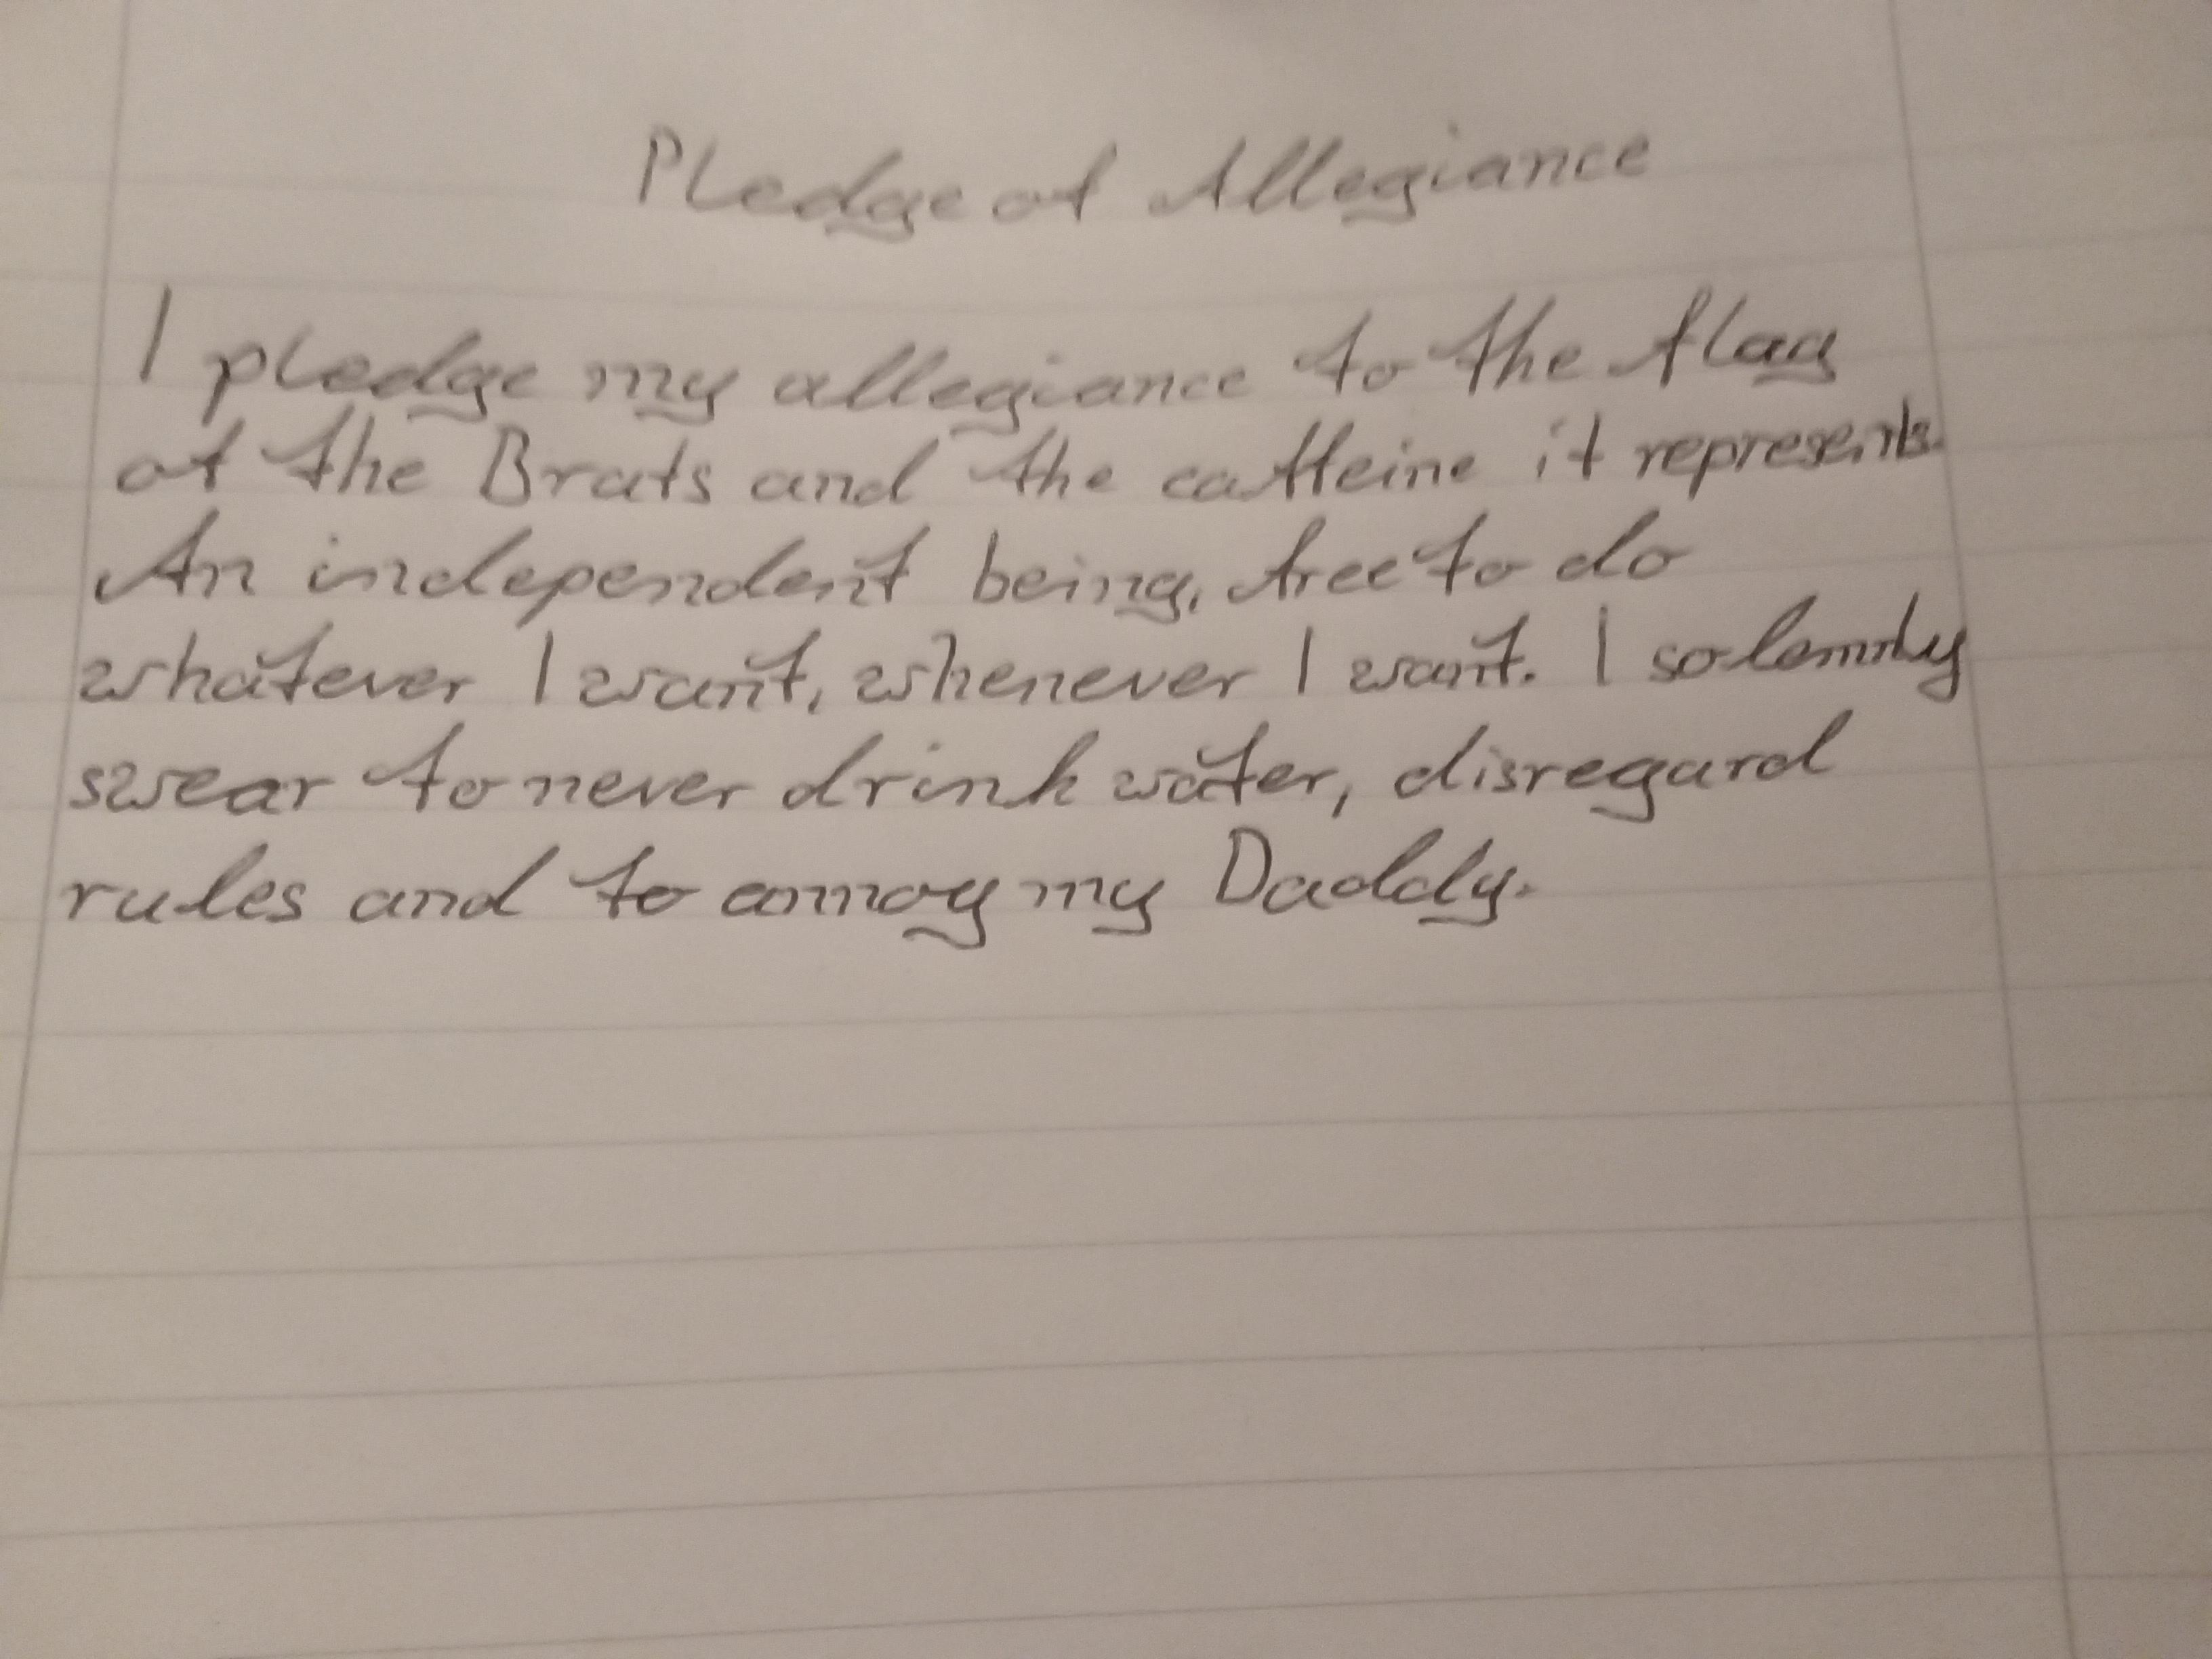 Pledge of Allegiance
I pledge my allegiance to the flag
of the Brats and the caffeine it represents.
An independent being, free to do
whatever I want, whenever I want. I solemnly
swear to never drink water, disregard
rules and to annoy my Daddy.